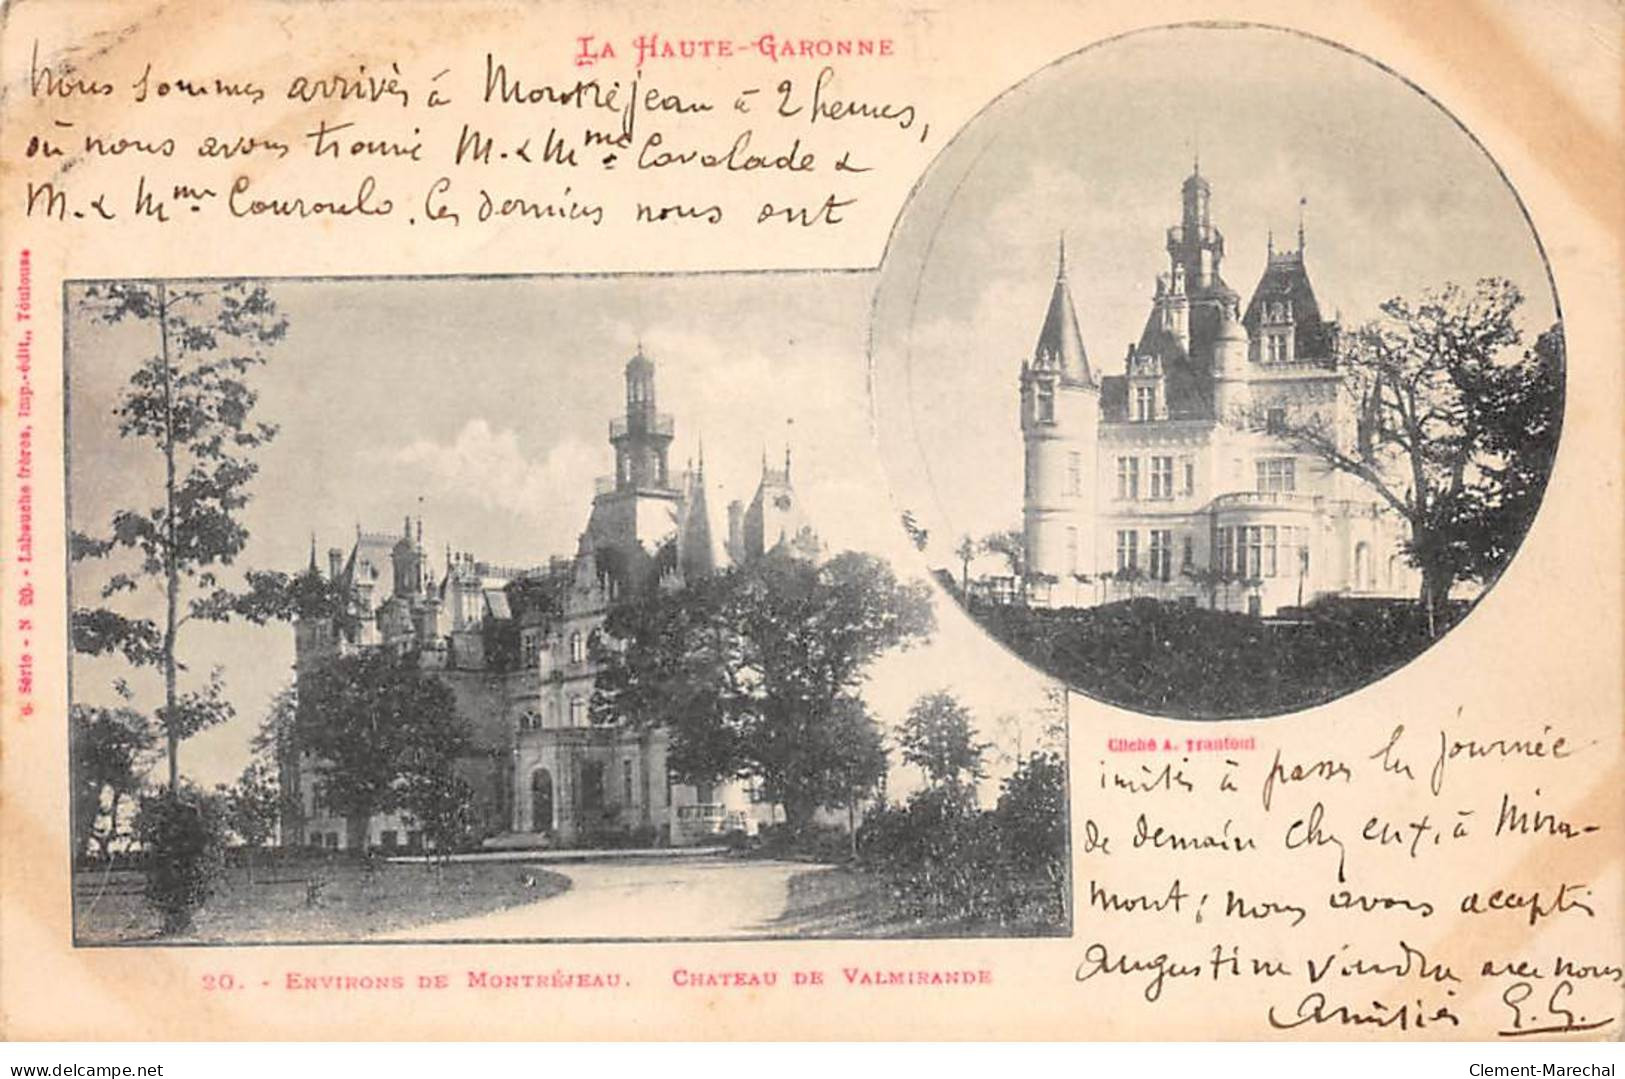 LA HAUTE-GARONNE
Nous sommes arrivés à Montréjeau à 2 heures,
où nous avons trouvé M. & Mme Cavalade &
M. & Mme Couroulo. Ces derniers nous ont
6 Série - N 20. - Labouche frères, imp.-édit., Toulouse
Cliché A. Trantoul
invités à passer la journée
de demain chez eux, à Mira-
mont ; nous avons accepté
Augustine viendra avec nous
Amitiés E. G.
20. - ENVIRONS DE MONTRÉJEAU. CHATEAU DE VALMIRANDE
www.delcampe.net
Clement-Marechal